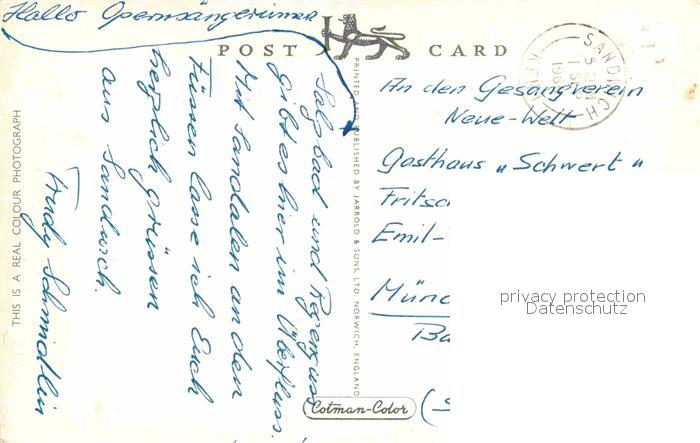 Hallo Opernsängerinnen
POST CARD
Salzbad und Regenguss
gibt es hier im Überfluss.
Mit Sandalen an den
Füssen lasse ich Euch
herzlich grüssen
aus Sandwich.
Trudy Schmidlin
THIS IS A REAL COLOUR PHOTOGRAPH
PRINTED AND PUBLISHED BY JARROLD & SONS, LTD. NORWICH, ENGLAND
Cotman-Color
SANDWICH
KENT
An den Gesangverein
Neue-Welt
Gasthaus „Schwert"
Emil-
privacy protection
Datenschutz